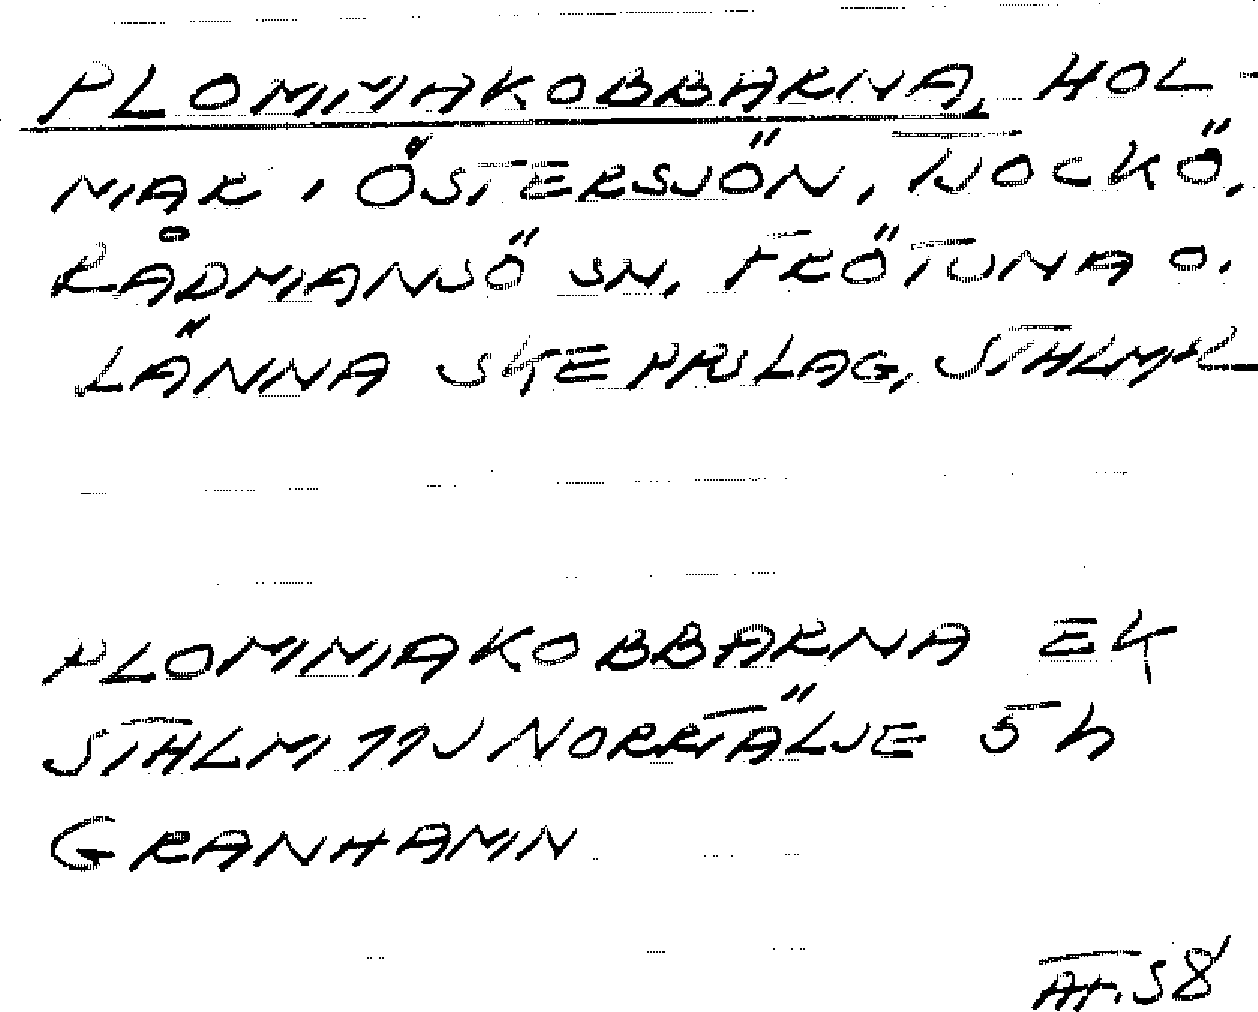 PLOMMAKOBBARNA, HOL-
MAR I ÖSTERSJÖN, NOCKÖ,
RÅDMANSÖ SN, FRÖTUNA O.
LÄNNA SKEPPSLAG, STHLMS L
PLOMMAKOBBARNA EK
STHLM 11J NORRTÄLJE 5 h
GRANHAMN